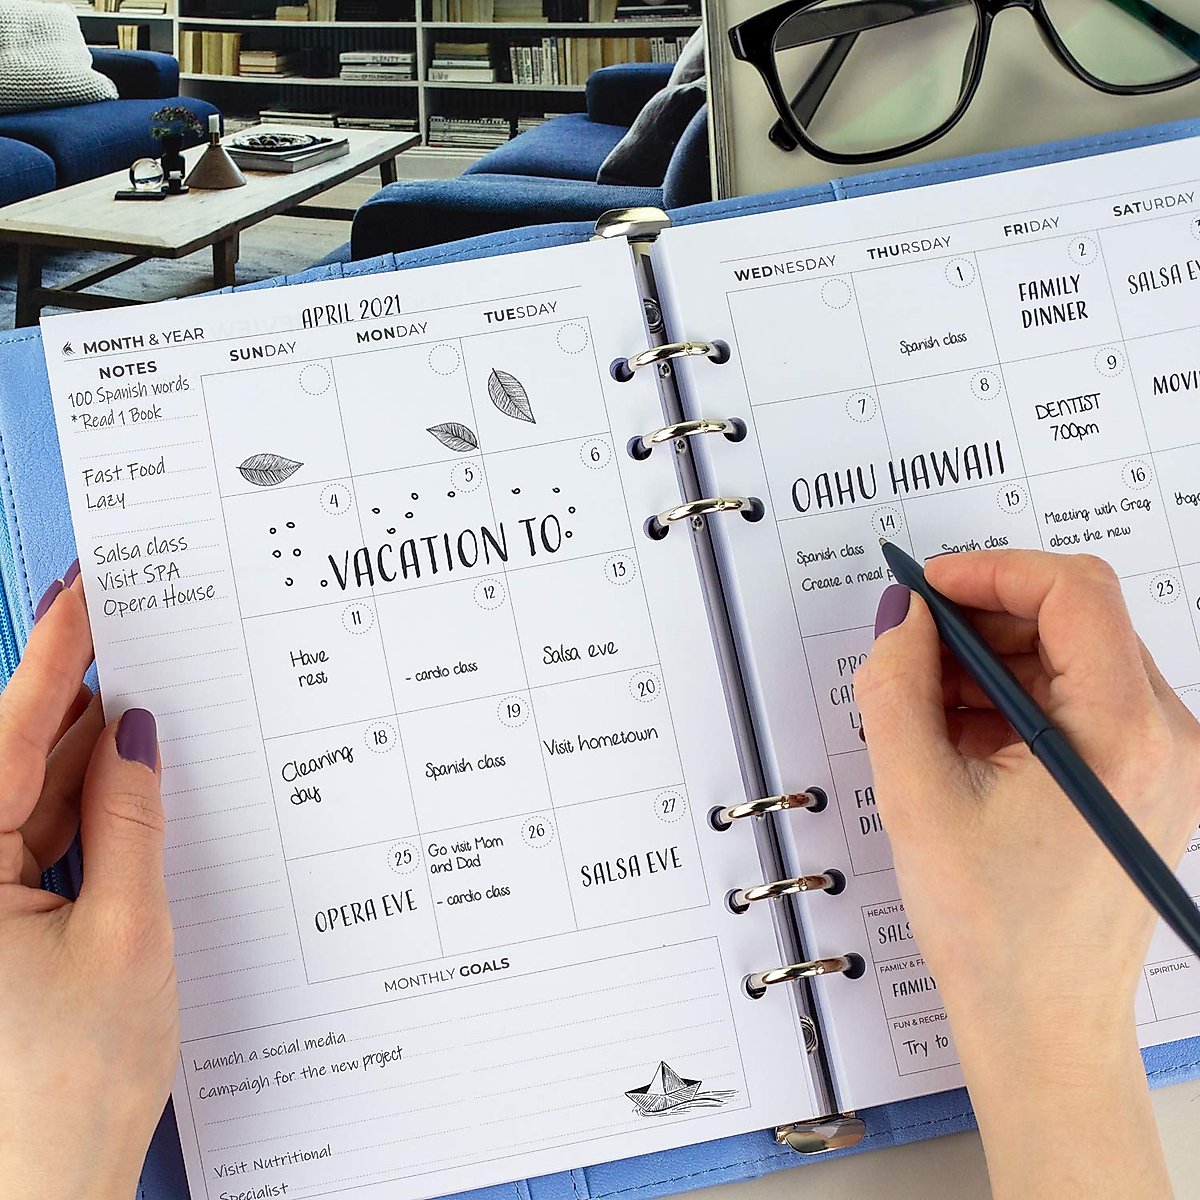 PLENTY
MONTH & YEAR
APRIL 2021
NOTES
100 Spanish words
*Read 1 Book
Fast Food
Lazy
Salsa class
Visit SPA
Opera House
SUNDAY
MONDAY
TUESDAY
4
5
6
VACATION TO
11
Have
rest
12
- cardio class
13
Salsa eve
18
Cleaning
day
19
Spanish class
20
Visit hometown
25
OPERA EVE
26
Go visit Mom
and Dad
- cardio class
27
SALSA EVE
MONTHLY GOALS
Launch a social media
Campaign for the new project
Visit Nutritional
Specialist
WEDNESDAY
THURSDAY
FRIDAY
SATURDAY
1
Spanish class
2
FAMILY
DINNER
SALSA
7
8
OAHU HAWAII
9
DENTIST
7:00pm
14
Spanish class
Create a meal
15
Spanish class
16
Meeting with Greg
about the new
23
HEALTH &
FAMILY &
FAMILY
FUN &
Try to
SPIRITUAL